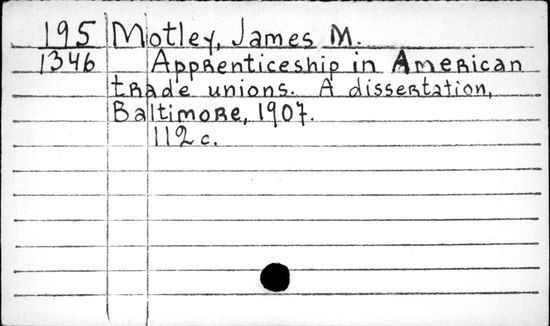 195 Motley, James M.
1346 Apprenticeship in American
trade unions. A dissertation,
Baltimore, 1907.
112 c.